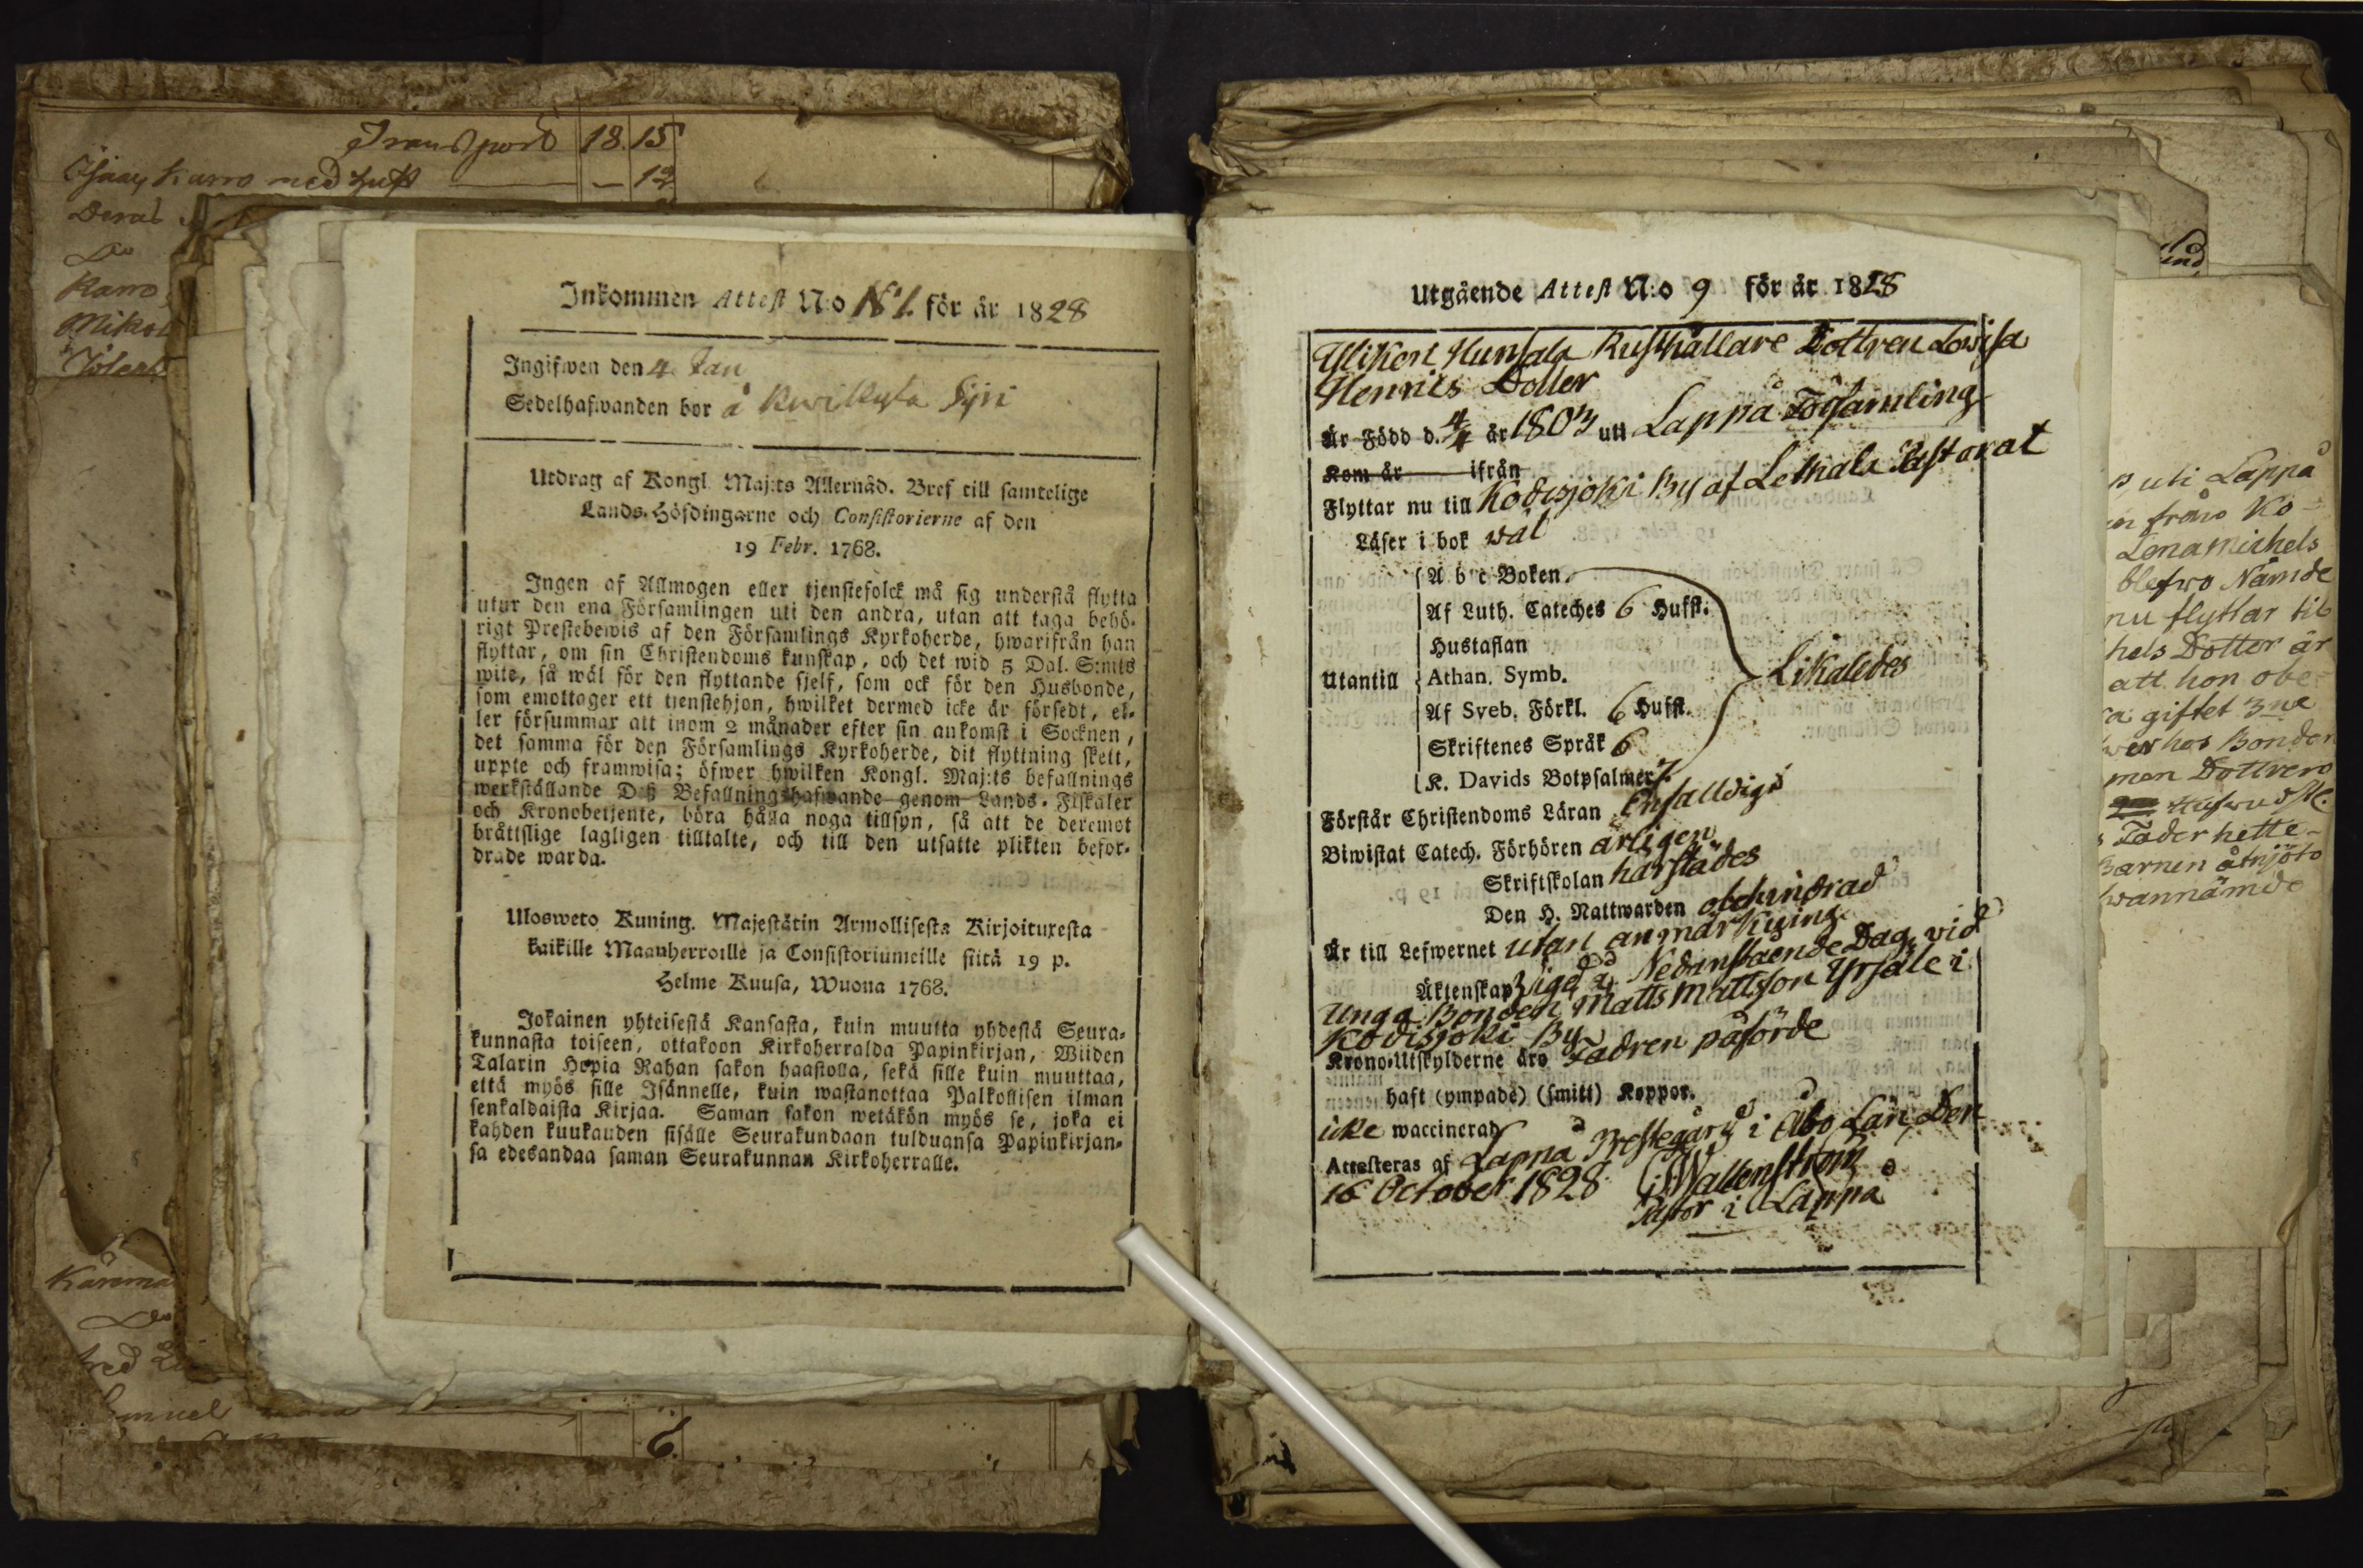 Transport 18. 15
med - 12
Karro
Inkommen Attest N:o N:1. för år 1828
Ingifwen den 4 Jan
Sedelhafwanden bor å
Utdrag af Kongl. Maj:ts Allernåd. Bref till samtelige
Lands-Höfdingarne och Consistorierne af den
19 Febr. 1768.
Ingen af Allmogen eller tjenstefolck må sig understå flytta
utur den ena Församlingen uti den andra, utan att taga behö-
rigt Prestebewis af den Församlings Kyrkoherde, hwarifrån han
flyttar, om sin Christendoms kunskap, och det wid 5 Dal. S:mts
wite, så wäl för den flyttande sjelf, som ock för den Husbonde,
som emottager ett tjenstehjon, hwilket dermed icke är försedt, el-
ler försummar att inom 2 månader efter sin ankomst i Socknen,
det samma för den Församlings Kyrkoherde, dit flyttning skett,
uppte och framwisa; öfwer hwilken Kongl. Maj:ts befallnings
werkställande Dß Befallningshafwande genom Lands-Fiskaler
och Kronobetjente, böra hålla noga tillsyn, så att de deremot
bråttslige lagligen tilltalte, och till den utsatte plikten befor-
drade warda.
Ulosweto Kuning. Majestätin Armollisesta Kirjoituxesta
kaikille Maanherroille ja Consistoriumeille siitä 19 p.
Helme Kuusa, Wuona 1768.
Jokainen yhteisestä Kansasta, kuin muutta yhdestä Seura-
kunnasta toiseen, ottakoon Kirkoherralda Papinkirjan, Wiiden
Talarin Hopia Rahan sakon haastolla, sekä sille kuin muuttaa,
että myös sille Isännelle, kuin wastanottaa Palkollisen ilman
senkaldaista Kirjaa. Saman sakon wetäkön myös se, joka ei
kahden kuukauden sisälle Seurakundaan tulduansa Papinkirjan-
sa edesandaa saman Seurakunnan Kirkoherralle.
6.
Utgående Attest N:o 9 för år 1828
Ylikeri Hunsala Rusthållare Dottren Lovisa
Henrics Dotter
Är Född d. 4/4 år 1803 uti Lappa Församling
Kom år ifrån
Flyttar nu till Kodisjoki By af Lethala Pastorat
Läser i bok wäl
A b c Boken.
Af Luth. Cateches 6 Huffst.
Hustaflan
Utantill Athan. Symb. Likaledes
Af Sveb. Förkl. 6 Huffst.
Skriftenes Språk 6
K. Davids Botpsalmer 7
Förstår Christendoms Läran Enfalldigt
Biwistat Catech. Förhören årligen
Skriftskolan härstädes
Den H. Nattwarden obehindrad
Är till Lefwernet utan anmärkning
Äktenskap Nedanstående Dag vid
Unga Bonden Matts Mattsson Yrjäle i
Kodisjoki By
Krono-Utskylderne äro Fadren påförde
haft (ympade) (smitt) Koppor.
icke waccinerad
Attesteras af Lappa Prestegård i Åbo Län Den
16 October 1828 Wallenström
Pastor i Lappa
uti Lappa
från Ko-
Lena Michels
blefwo Nämde
nu flyttar till
hels Dotter är
att hon obe-
giftet 3ne
hos Bonden
Dottren
Fader hette
Barnen åtnjöto
wannämde